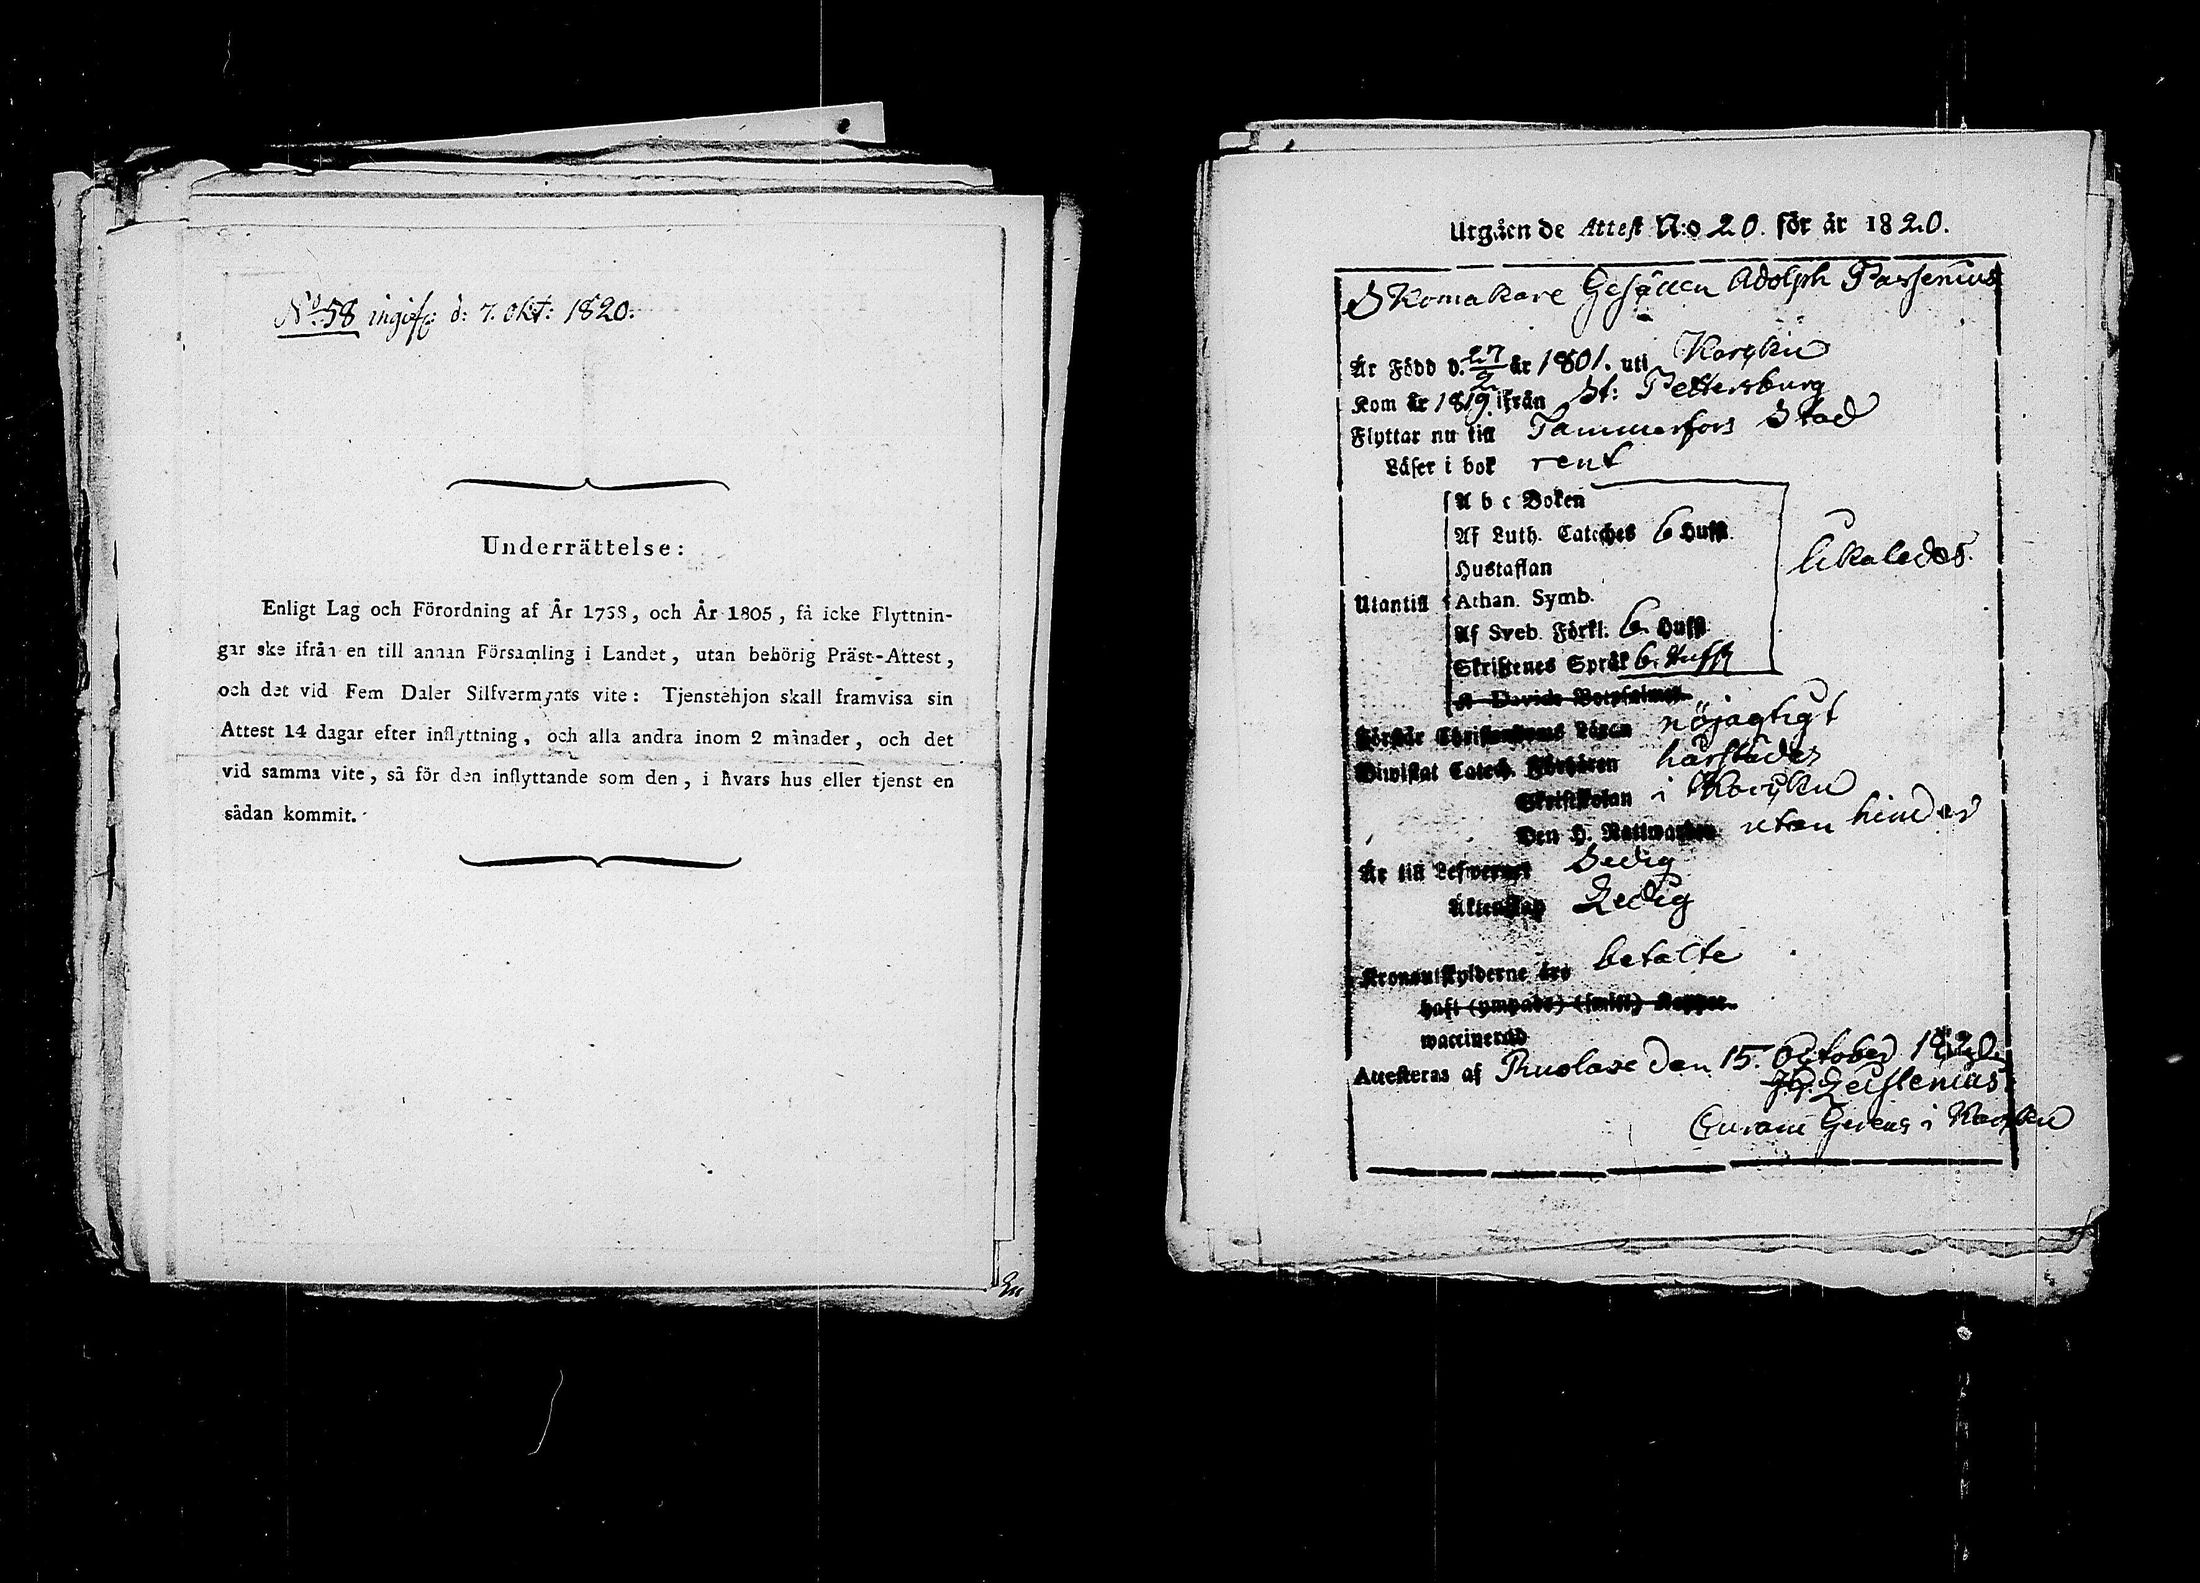 No 58 ingifv: d: 7. Okt: 1820.
Underrättelse:
Enligt Lag och Förordning af År 1788, och År 1805, få icke Flyttnin-
gar ske ifrån en till annan Församling i Landet, utan behörig Präst-Attest,
och det vid Fem Daler Silfvermynts vite: Tjenstehjon skall framvisa sin
Attest 14 dagar efter inflyttning, och alla andra inom 2 månader, och det
vid samma vite, så för den inflyttande som den, i hvars hus eller tjenst en
sådan kommit.
Utgåen de Attest N:o 20. för år 1820.
Skomakare Gesällen Adolph Passenius
Är Född d. 27/2 år 1801. uti Karkku
Kom år 1819 ifrån St: Pettersburg
Flyttar nu till Tammerfors Stad
Läser i bok rent
A b c Boken
Af Luth. Cateches 6 Hufst.
Hustaflan
likaledes.
Utantill Athan. Symb.
Af Sveb. Förkl. 6. Hufst
Skriftenes Språk 6. Hufst
A Davids Botpsalmer
Förstår Christendoms Läran nöjagtigt
Biwistat Catech. Förhören härstädes
Skriftskolan i Karkku
Den H. Nattwarden utan hinder
Är till Lefwernet Sedig
Äktenskap Ledig
Kronoutskylderne äro betalte
haft (ympade) (smitt) Koppor
waccinerad
Attesteras af Ruolaxe den 15. October 1820.
Zeislenius
Curam Gerens i Karkku